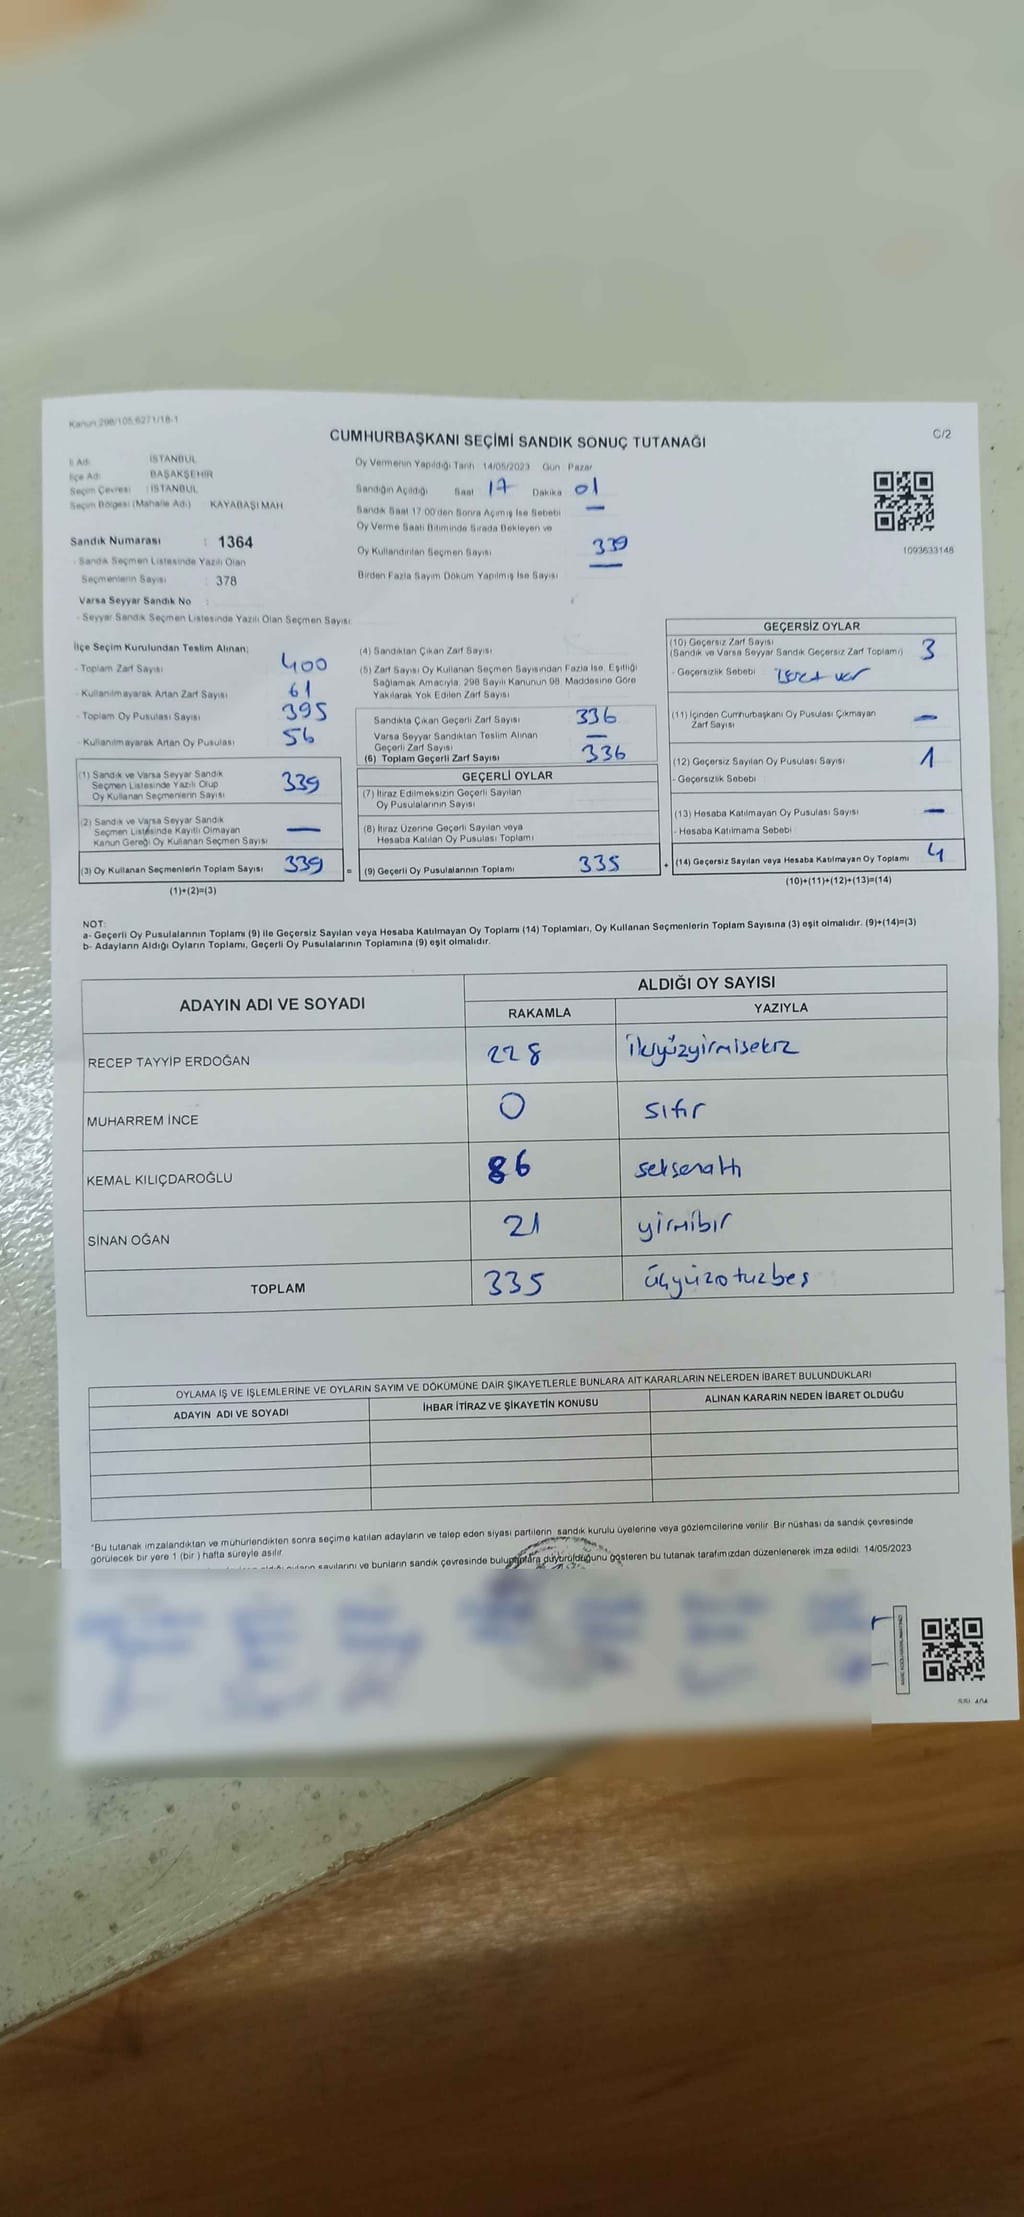 Kanun 298/105,6271/18-1
CUMHURBAŞKANI SEÇİMİ SANDIK SONUÇ TUTANAĞI
C/2
İl Adı : İSTANBUL
İlçe Adı : BAŞAKŞEHİR
Seçim Çevresi : İSTANBUL
Seçim Bölgesi (Mahalle Adı) KAYABAŞI MAH
Sandık Numarası : 1364
- Sandık Seçmen Listesinde Yazılı Olan
Seçmenlerin Sayısı : 378
Varsa Seyyar Sandık No :
- Seyyar Sandık Seçmen Listesinde Yazılı Olan Seçmen Sayısı:
Oy Vermenin Yapıldığı Tarih 14/05/2023 Gün Pazar
Sandığın Açıldığı Saat 17 Dakika 01
Sandık Saat 17.00'den Sonra Açılmış İse Sebebi —
Oy Verme Saati Bitiminde Sırada Bekleyen ve
Oy Kullandırılan Seçmen Sayısı 339
Birden Fazla Sayım Döküm Yapılmış İse Sayısı —
1093633146
İlçe Seçim Kurulundan Teslim Alınan;
- Toplam Zarf Sayısı 400
- Kullanılmayarak Artan Zarf Sayısı 61
- Toplam Oy Pusulası Sayısı 395
- Kullanılmayarak Artan Oy Pusulası 56
(1) Sandık ve Varsa Seyyar Sandık
Seçmen Listesinde Yazılı Olup
Oy Kullanan Seçmenlerin Sayısı 339
(2) Sandık ve Varsa Seyyar Sandık
Seçmen Listesinde Kayıtlı Olmayan
Kanun Gereği Oy Kullanan Seçmen Sayısı —
(3) Oy Kullanan Seçmenlerin Toplam Sayısı 339
(1)+(2)=(3)
=
(4) Sandıktan Çıkan Zarf Sayısı
(5) Zarf Sayısı Oy Kullanan Seçmen Sayısından Fazla İse, Eşitliği
Sağlamak Amacıyla, 298 Sayılı Kanunun 98. Maddesine Göre
Yakılarak Yok Edilen Zarf Sayısı
Sandıkta Çıkan Geçerli Zarf Sayısı 336
Varsa Seyyar Sandıktan Teslim Alınan
Geçerli Zarf Sayısı —
(6) Toplam Geçerli Zarf Sayısı 336
GEÇERLİ OYLAR
(7) İtiraz Edilmeksizin Geçerli Sayılan
Oy Pusulalarının Sayısı
(8) İtiraz Üzerine Geçerli Sayılan veya
Hesaba Katılan Oy Pusulası Toplamı
(9) Geçerli Oy Pusulalarının Toplamı 335
+
GEÇERSİZ OYLAR
(10) Geçersiz Zarf Sayısı
(Sandık ve Varsa Seyyar Sandık Geçersiz Zarf Toplamı) 3
- Geçersizlik Sebebi
(11) İçinden Cumhurbaşkanı Oy Pusulası Çıkmayan
Zarf Sayısı —
(12) Geçersiz Sayılan Oy Pusulası Sayısı 1
- Geçersizlik Sebebi
(13) Hesaba Katılmayan Oy Pusulası Sayısı —
- Hesaba Katılmama Sebebi
(14) Geçersiz Sayılan veya Hesaba Katılmayan Oy Toplamı 4
(10)+(11)+(12)+(13)=(14)
NOT:
a- Geçerli Oy Pusulalarının Toplamı (9) ile Geçersiz Sayılan veya Hesaba Katılmayan Oy Toplamı (14) Toplamları, Oy Kullanan Seçmenlerin Toplam Sayısına (3) eşit olmalıdır. (9)+(14)=(3)
b- Adayların Aldığı Oyların Toplamı, Geçerli Oy Pusulalarının Toplamına (9) eşit olmalıdır.
ADAYIN ADI VE SOYADI
ALDIĞI OY SAYISI
RAKAMLA YAZIYLA
RECEP TAYYİP ERDOĞAN 228 ikiyüzyirmisekiz
MUHARREM İNCE 0 sıfır
KEMAL KILIÇDAROĞLU 86 seksenaltı
SİNAN OĞAN 21 yirmibir
TOPLAM 335 üçyüzotuzbeş
OYLAMA İŞ VE İŞLEMLERİNE VE OYLARIN SAYIM VE DÖKÜMÜNE DAİR ŞİKAYETLERLE BUNLARA AİT KARARLARIN NELERDEN İBARET BULUNDUKLARI
ADAYIN ADI VE SOYADI İHBAR İTİRAZ VE ŞİKAYETİN KONUSU ALINAN KARARIN NEDEN İBARET OLDUĞU
*Bu tutanak imzalandıktan ve mühürlendikten sonra seçime katılan adayların ve talep eden siyasi partilerin sandık kurulu üyelerine veya gözlemcilerine verilir. Bir nüshası da sandık çevresinde
görülecek bir yere 1 (bir) hafta süreyle asılır.
sayılarını ve bunların sandık çevresinde bulunanlara duyurulduğunu gösteren bu tutanak tarafımızdan düzenlenerek imza edildi. 14/05/2023